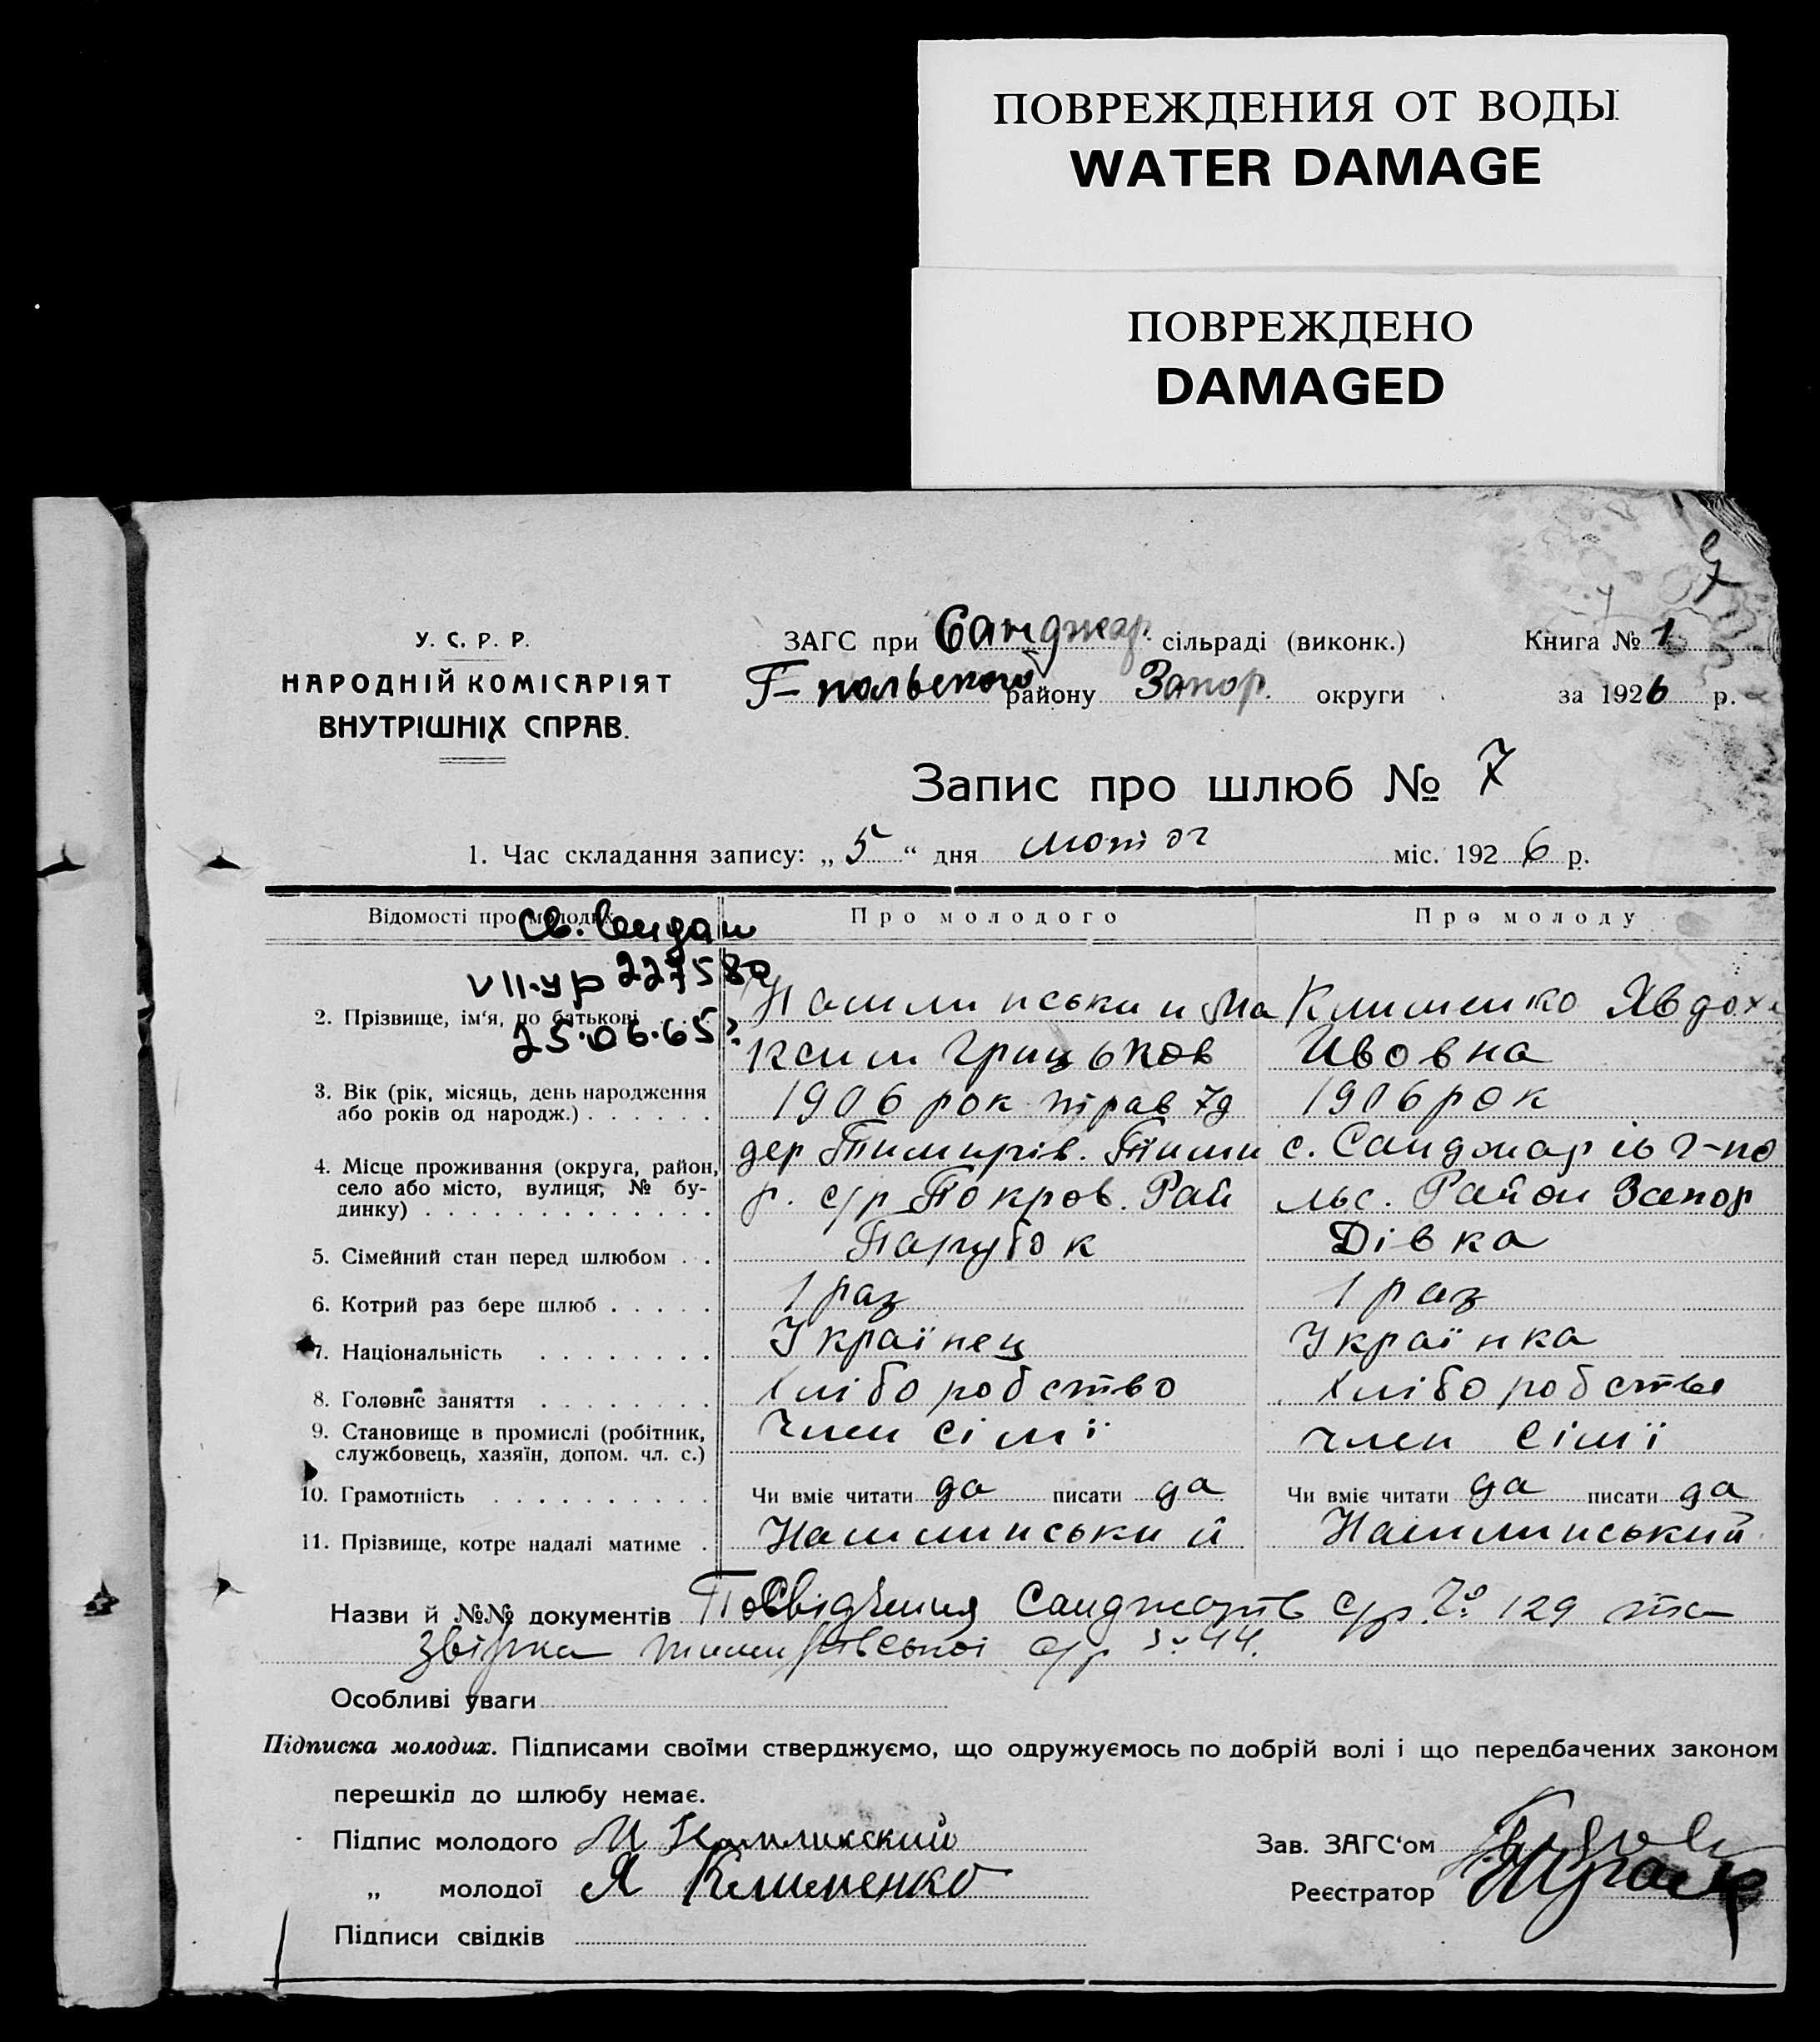 ПОВРЕЖДЕНИЯ ОТ ВОДЫ
WATER DAMAGE
ПОВРЕЖДЕНО
DAMAGED
У. С. Р. Р.
НАРОДНІЙ КОМІСАРІЯТ
ВНУТРІШНІХ СПРАВ.
ЗАГС при Санджар. сільраді (виконк.)
Г-польского району Запор. округи
Книга № 1
за 1926 р.
7
Запис про шлюб № 7
1. Час складання запису: „5“ дня міс. 1926 р.
Відомості про молодих
Про молодого
Про молоду
Св. выдан
VII-ур 227580
25.06.65г.
2. Прізвище, ім'я, по батькові
Ма Клименко Явдоха
ксим Грицьков Ивовна
3. Вік (рік, місяць, день народження
або років од народж.)
1906 рок 7д 1906 рок
4. Місце проживання (округа, район,
село або місто, вулиця, № бу-
динку)
дер Тимирів. Тими с. Санджарів Г-по
р. с/р Покров. Рай льс. Район Запор
5. Сімейний стан перед шлюбом
Парубок Дівка
6. Котрий раз бере шлюб
1 раз 1 раз
7. Національність
Українец Українка
8. Головне заняття
Хліборобство Хліборобство
9. Становище в промислі (робітник,
службовець, хазяїн, допом. чл. с.)
Член сімї член сімї
10. Грамотність
Чи вміє читати да писати да Чи вміє читати да писати да
11. Прізвище, котре надалі матиме
Назви й №№ документів Посвідчення Санджарів с/р № 129 та
с/р № 44.
Особливі уваги
Підписка молодих. Підписами своїми стверджуємо, що одружуємось по добрій волі і що передбачених законом
перешкід до шлюбу немає.
Підпис молодого М
„ молодої Я Клименко
Підписи свідків
Зав. ЗАГС'ом
Реєстратор